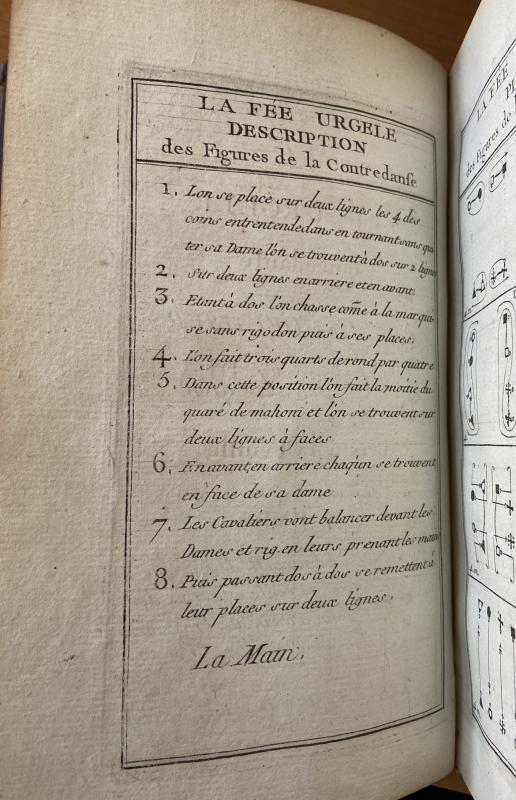 LA FÉE URGELE
DESCRIPTION
des Figures de la Contredanse
1. L'on se place sur deux lignes les 4 des
coins entrentendedans en tournant sans quit
ter sa Dame l'on se trouvent à dos sur 2 lignes
2. Sur deux lignes en arriere et en avant.
3. Etant à dos l'on chasse come à la marqui-
se sans rigodon puis à ses places.
4. L'on fait trois quarts de rond par quatre
5. Dans cette position l'on fait la moitie du
quaré de mahoni et l'on se trouvent sur
deux lignes à faces
6. En avant, en arriere chaq'un se trouvent
en face de sa dame
7. Les Cavaliers vont balancer devant les
Dames et rig. en leurs prenant les mains
8. Puis passant dos à dos se remettent à
leur places sur deux lignes.
La Main.
LA FÉE
des Figures de